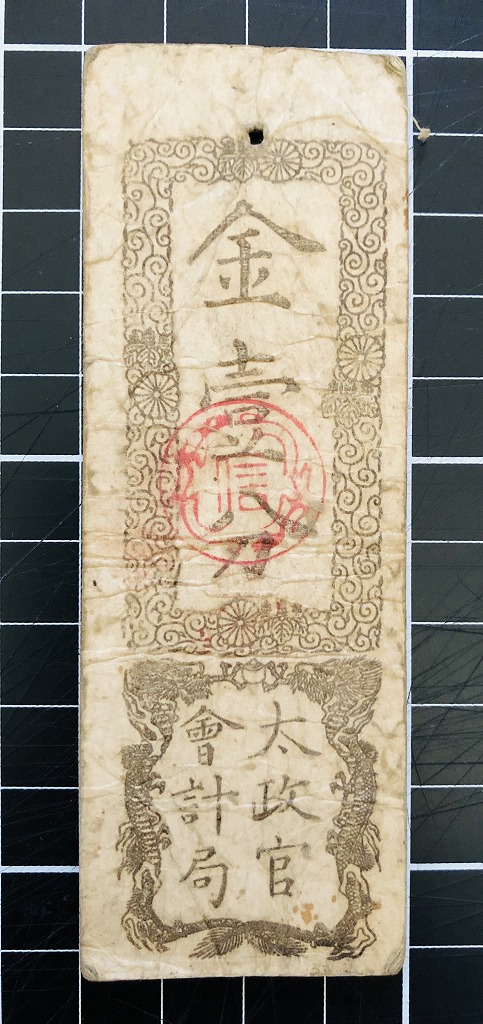 金壹分
信
太政官
會計局